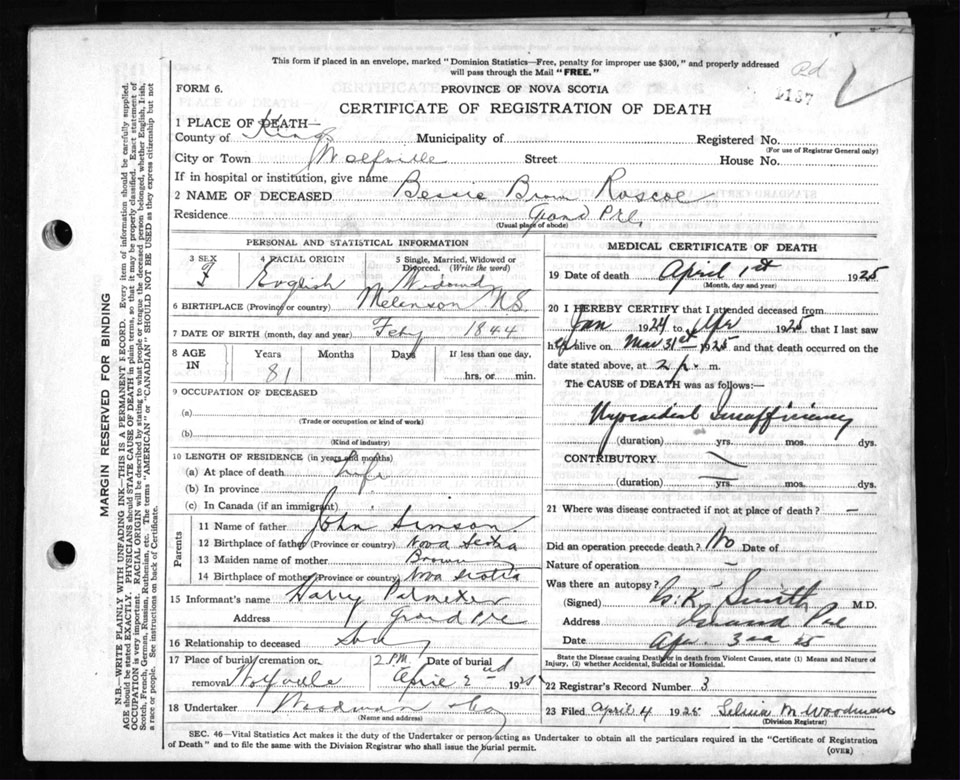 This form if placed in an envelope, marked "Dominion Statistics—Free, penalty for improper use $300," and properly addressed
will pass through the Mail "FREE."
Rd
FORM 6.
PROVINCE OF NOVA SCOTIA
CERTIFICATE OF REGISTRATION OF DEATH
1 PLACE OF DEATH—
County of Kings Municipality of Registered No.
(For use of Registrar General only)
City or Town Wolfville Street House No.
If in hospital or institution, give name
2 NAME OF DECEASED Bessie Brown Roscoe
Residence Grand Pre,
(Usual place of abode)
PERSONAL AND STATISTICAL INFORMATION
3 SEX F
4 RACIAL ORIGIN English
5 Single, Married, Widowed or Divorced. (Write the word) Widowed
6 BIRTHPLACE (Province or country) Melanson N.S.
7 DATE OF BIRTH (month, day and year) Feby 1844
8 AGE IN Years 81 Months Days If less than one day, hrs. or min.
9 OCCUPATION OF DECEASED
(a)
(Trade or occupation or kind of work)
(b)
(Kind of industry)
10 LENGTH OF RESIDENCE (in years and months)
(a) At place of death Life
(b) In province
(c) In Canada (if an immigrant)
Parents
11 Name of father John Simson
12 Birthplace of father (Province or country) Nova Scotia
13 Maiden name of mother Brown
14 Birthplace of mother (Province or country) Nova Scotia
15 Informant's name Harry Palmeter
Address Grand Pre
16 Relationship to deceased Son
17 Place of burial, cremation or removal Wolfville 2 P.M. Date of burial April 2nd 1925
18 Undertaker Woodman &
(Name and address)
MEDICAL CERTIFICATE OF DEATH
19 Date of death April 1st 1925
(Month, day and year)
20 I HEREBY CERTIFY that I attended deceased from
Jan 1924 to Apr 1925 that I last saw
her alive on Mar 31st 1925 and that death occurred on the
date stated above, at 2 p. m.
The CAUSE of DEATH was as follows:—
Myocardial Insufficiency
(duration) yrs. mos. dys.
CONTRIBUTORY
(duration) yrs. mos. dys.
21 Where was disease contracted if not at place of death? —
Did an operation precede death? No Date of
Nature of operation —
Was there an autopsy?
(Signed) Smith M.D.
Address Grand Pre
Date Apr 3rd 25
State the Disease causing Death, or in death from Violent Causes, state (1) Means and Nature of
Injury, (2) whether Accidental, Suicidal or Homicidal.
22 Registrar's Record Number 3
23 Filed April 4 1925 M Woodman
(Division Registrar)
SEC. 46—Vital Statistics Act makes it the duty of the Undertaker or person acting as Undertaker to obtain all the particulars required in the "Certificate of Registration
of Death" and to file the same with the Division Registrar who shall issue the burial permit.
(OVER)
MARGIN RESERVED FOR BINDING
N.B.—WRITE PLAINLY WITH UNFADING INK—THIS IS A PERMANENT RECORD. Every item of information should be carefully supplied.
AGE should be stated EXACTLY. PHYSICIANS should STATE CAUSE OF DEATH in plain terms, so that it may be properly classified. Exact statement of
OCCUPATION is very important. RACIAL ORIGIN will be described by stating to what people or tongue the deceased person belonged, whether English, Irish,
Scotch, French, German, Russian, Ruthenian, etc. The terms "AMERICAN" or "CANADIAN" SHOULD NOT BE USED as they express citizenship but not
a race or people. See instructions on back of Certificate.